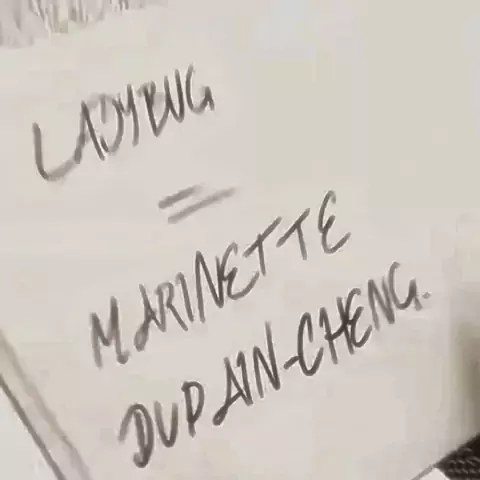 LADYBUG
=
MARINETTE
DUPAIN-CHENG.